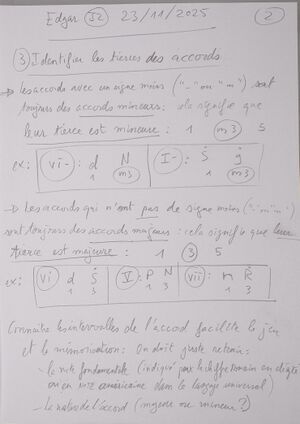 Edgar J2 23/11/2025 2
③ Identifier les tierces des accords
→ Les accords avec un signe moins ("-" ou "m") sont
toujours des accords mineurs : cela signifie que
leur tierce est mineure : 1 m3 5
ex: vi- : d N I- : S g
1 m3 1 m3
→ Les accords qui n'ont pas de signe moins ("-" "m")
sont toujours des accords majeurs : cela signifie que leur
tierce est majeure : 1 3 5
ex: VI d S V : P N VII : n R
1 3 1 3 1 3
Connaître les intervalles de l'accord facilite le jeu
et la mémorisation : On doit juste retenir :
- la note fondamentale (indiqué par le chiffre romain en degrés
ou en note américaine dans le langage universel)
- La nature de l'accord (majeure ou mineure ?)